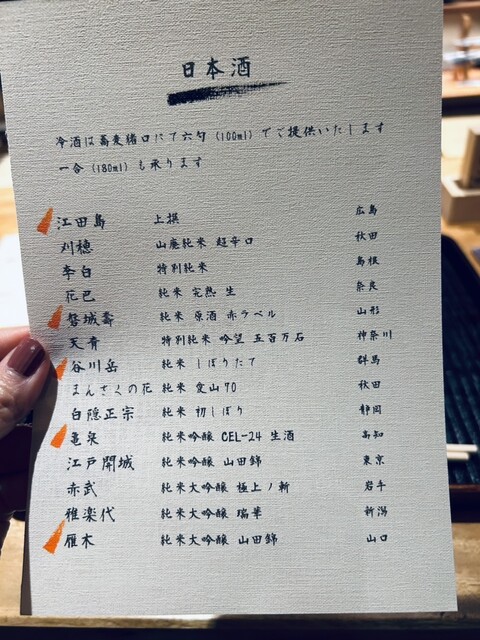 日本酒
冷酒は蕎麦猪口にて六勺(100ml)でご提供いたします
一合(180ml)も承ります
江田島 上撰 広島
刈穂 山廃純米 超辛口 秋田
李白 特別純米 島根
花巴 純米 完熟 生 奈良
磐城壽 純米 原酒 赤ラベル 山形
天青 特別純米 吟望 五百万石 神奈川
谷川岳 純米 しぼりたて 群馬
まんさくの花 純米 愛山70 秋田
白隠正宗 純米 初しぼり 静岡
亀泉 純米吟醸 CEL-24 生酒 高知
江戸開城 純米吟醸 山田錦 東京
赤武 純米大吟醸 極上ノ斬 岩手
雅楽代 純米大吟醸 瑞華 新潟
雁木 純米大吟醸 山田錦 山口